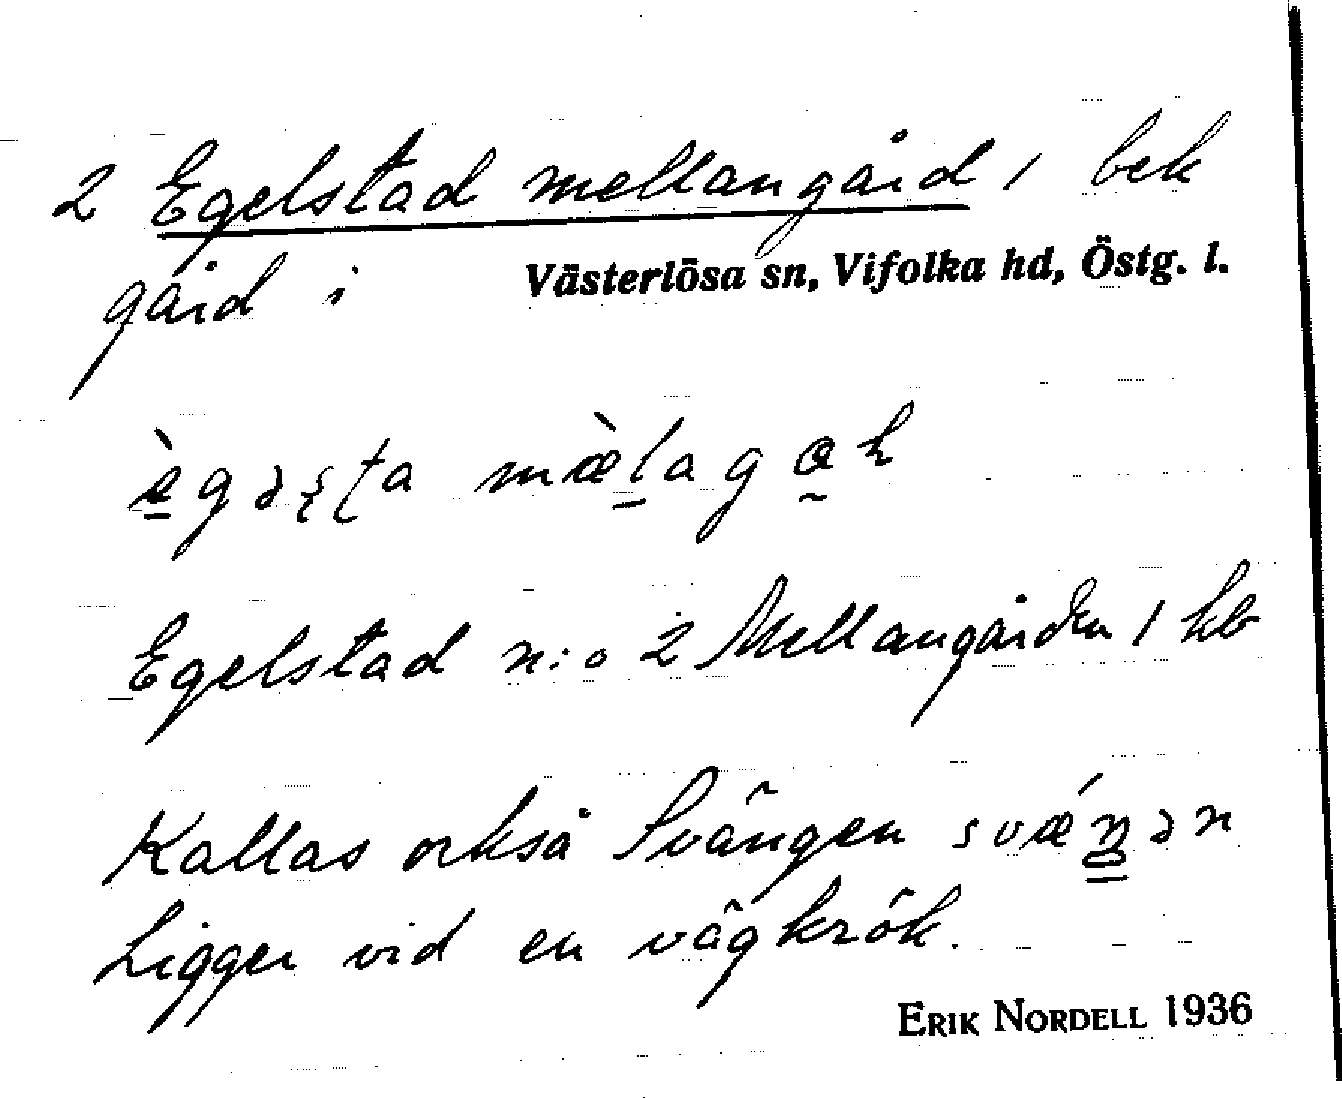 2 Egelstad mellangård, bek
gård i Västerlösa sn, Vifolka hd, Östg. l.
Egelstad n:o 2 Mellangården, kb
Kallas också Svängen svæŋən
Ligger vid en vägkrök.
ERIK NORDELL 1936